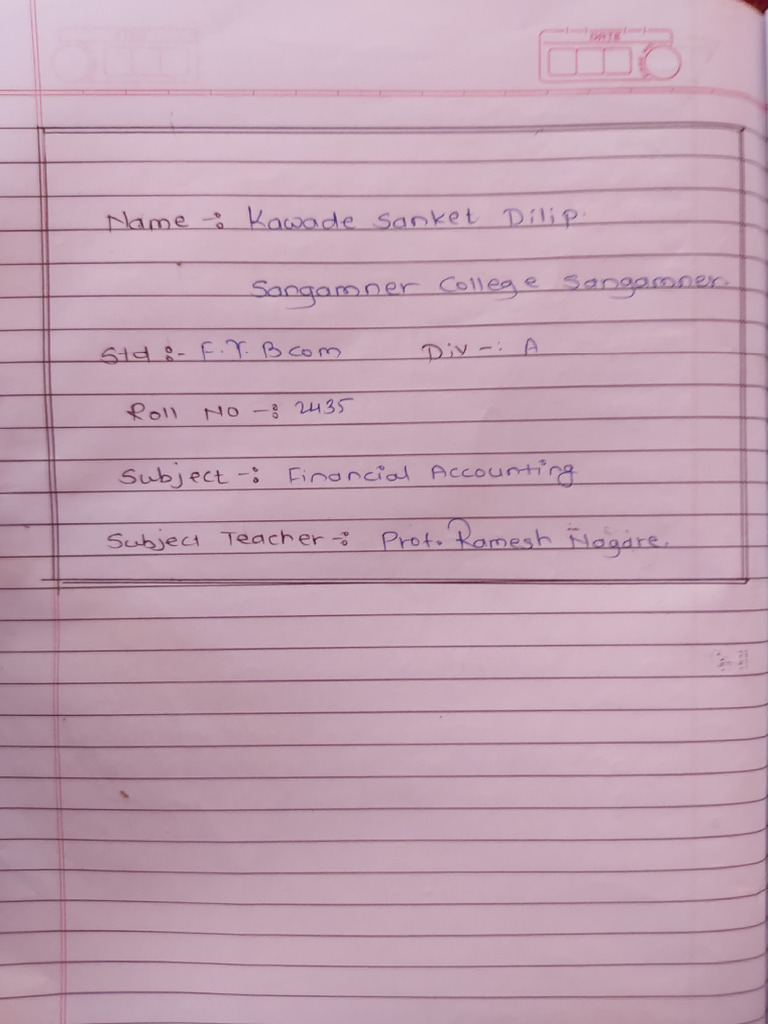 DATE
Name -: Kawade Sanket Dilip.
Sangamner College Sangamner.
Std :- F.Y. Bcom Div -: A
Roll No -: 2435
Subject -: Financial Accounting
Subject Teacher -: Prof. Ramesh Nagare.